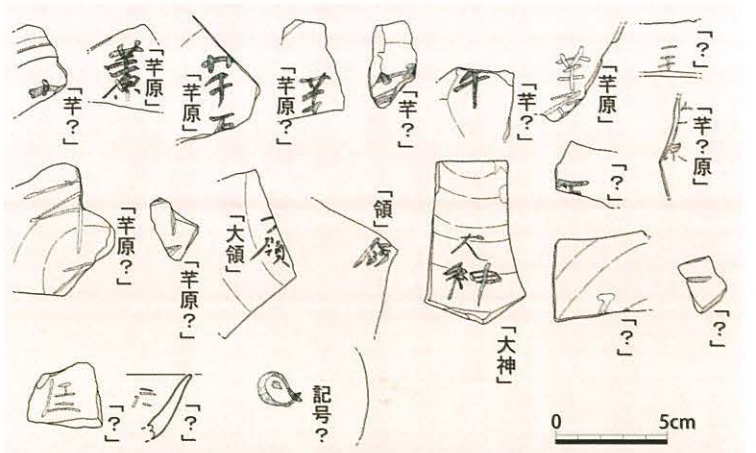 「芋？」
「芋原」
「芋原」
「芋原？」
「芋？」
「芋？」
「芋原」
「？」
「芋？原」
「？」
「芋原？」
「芋原？」
「大領」
「領」
大神
「大神」
「？」
「？」
「？」
「？」
記号？
0 5cm